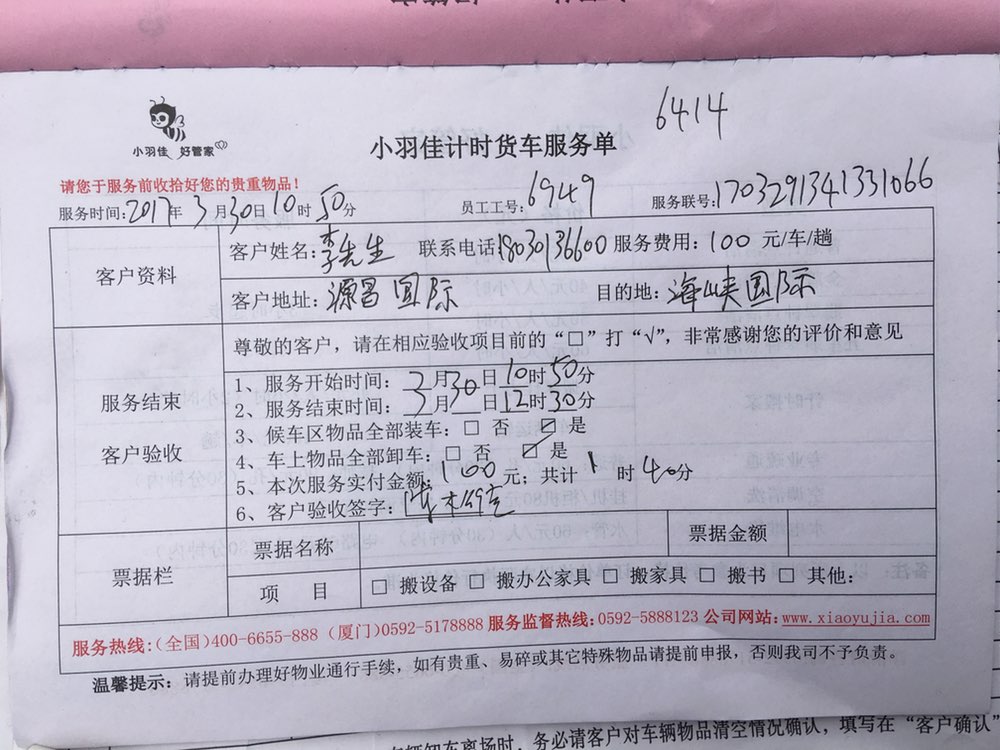 6414
小羽佳 好管家
小羽佳计时货车服务单
请您于服务前收拾好您的贵重物品！
服务时间:2017年 3月30日10时50分 员工工号:6949 服务联号:1703291341331066
客户资料
客户姓名:李先生 联系电话18030136600 服务费用:100 元/车/趟
客户地址:源昌国际 目的地:海峡国际
尊敬的客户，请在相应验收项目前的“□”打“√”，非常感谢您的评价和意见
服务结束
客户验收
1、服务开始时间: 3月30日10时50分
2、服务结束时间: 3月 日12时30分
3、候车区物品全部装车:□ 否 ☑ 是
4、车上物品全部卸车:□ 否 ☑ 是
5、本次服务实付金额:100元；共计1时40分
6、客户验收签字:
票据栏
票据名称 票据金额
项 目 □ 搬设备 □ 搬办公家具 □ 搬家具 □ 搬书 □ 其他:
服务热线:(全国)400-6655-888 (厦门)0592-5178888 服务监督热线:0592-5888123 公司网站:www.xiaoyujia.com
温馨提示: 请提前办理好物业通行手续，如有贵重、易碎或其它特殊物品请提前申报，否则我司不予负责。
车辆卸车离场时，务必请客户对车辆物品清空情况确认，填写在“客户确认”